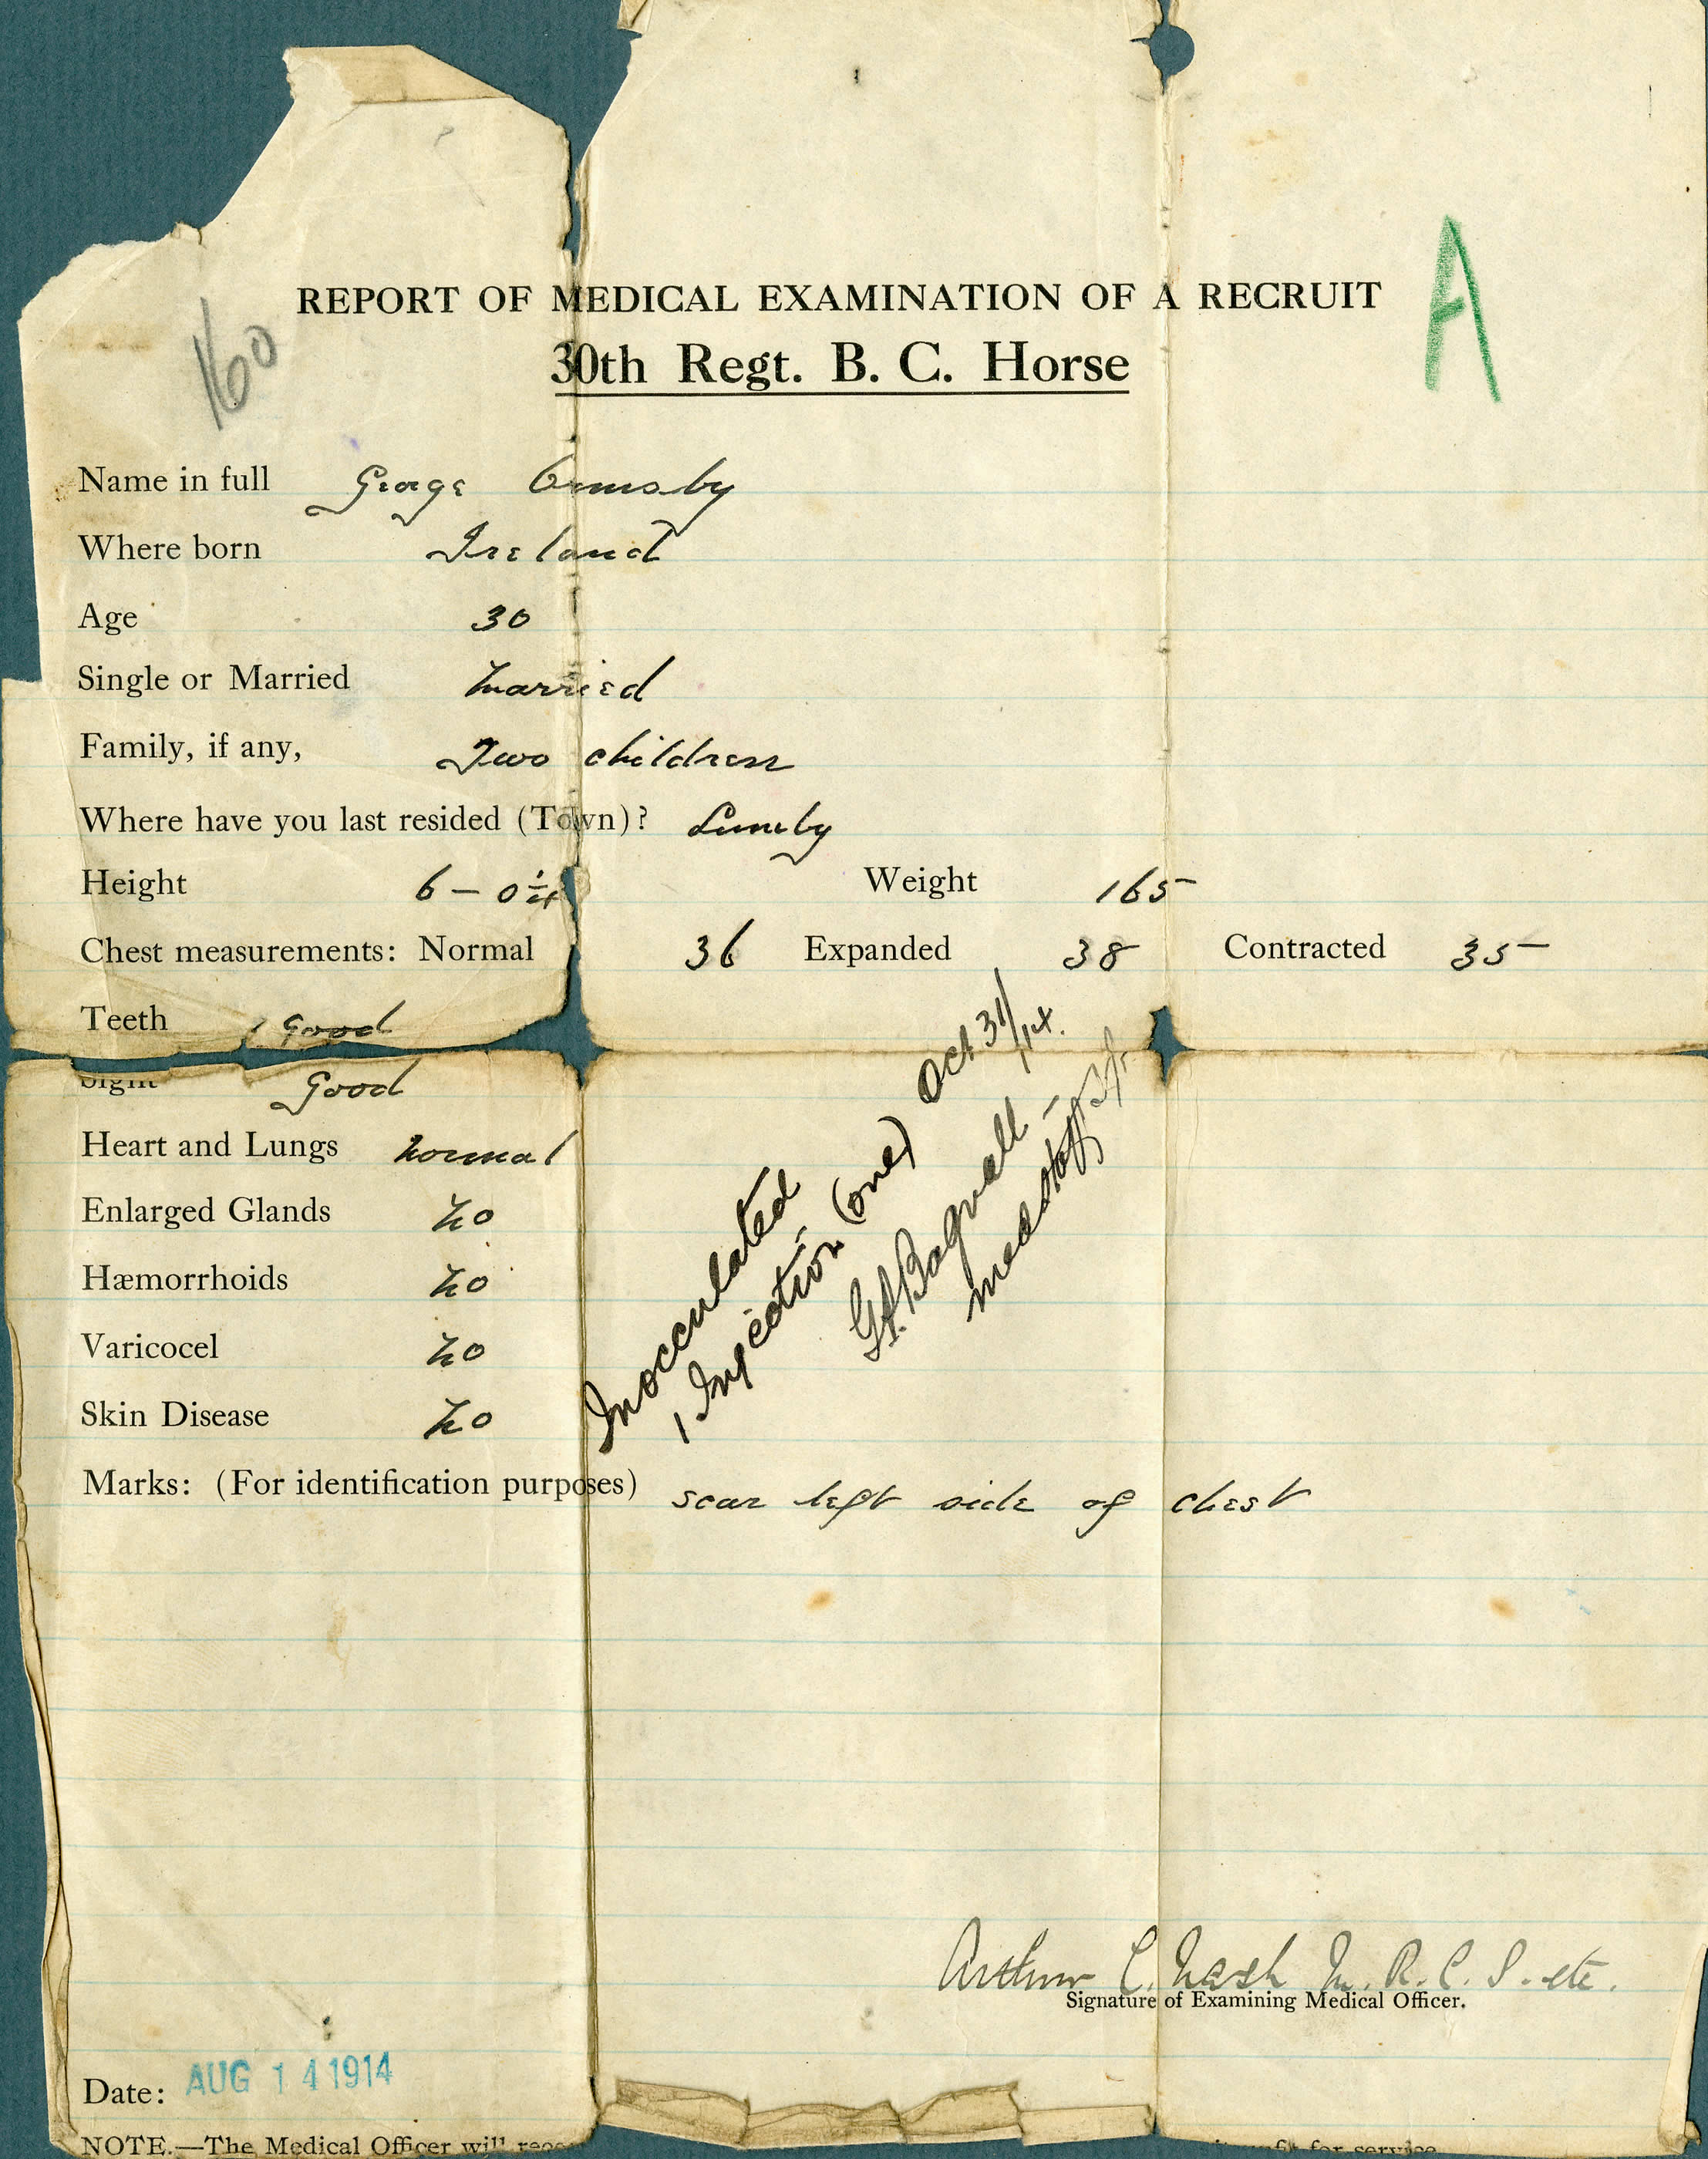 REPORT OF MEDICAL EXAMINATION OF A RECRUIT
A
160
30th Regt. B. C. Horse
Name in full George Ormsby
Where born Ireland
Age 30
Single or Married Married
Family, if any, Two children
Where have you last resided (Town)? Lumby
Height 6 - 0 1/4 Weight 165
Chest measurements: Normal 36 Expanded 38 Contracted 35
Teeth Good
Sight Good
Heart and Lungs normal
Enlarged Glands no
Hæmorrhoids no
Varicocel no
Skin Disease no
Inocculated
1 Injection (one) Oct 31/14.
Bagnall
Med staff
Marks: (For identification purposes) scar left side of chest
Arthur C. Nash M. R. C. S. etc.
Signature of Examining Medical Officer.
Date: AUG 14 1914
NOTE.—The Medical Officer will fit for service